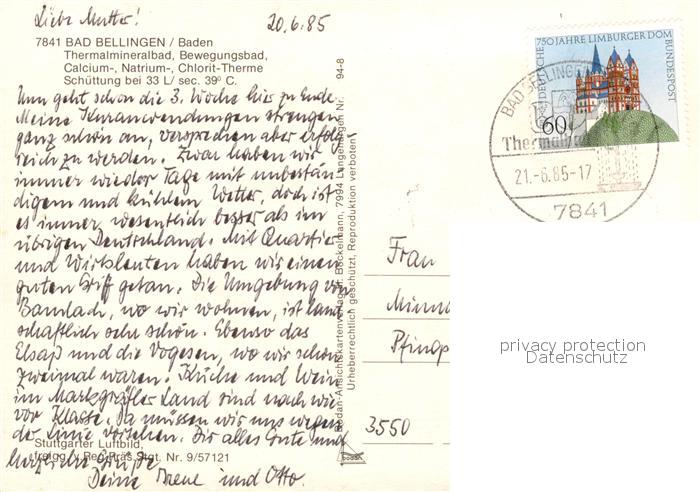 Liebe Mutter! 20.6.85
7841 BAD BELLINGEN / Baden
Thermalmineralbad, Bewegungsbad,
Calcium-, Natrium-, Chlorit-Therme
Schüttung bei 33 L/ sec. 39° C.
Nun geht schon die 3. Woche hier zu Ende.
Meine Kuranwendungen strengen
ganz schön an, versprechen aber erfolg-
reich zu werden. Zwar haben wir
immer wieder Tage mit unbestän-
digem und kühlem Wetter, doch ist
es immer wesentlich besser als im
übrigen Deutschland. Mit Quartier
und Wirtsleuten haben wir einen
guten Griff getan. Die Umgebung von
Bamlach, wo wir wohnen, ist land-
schaftlich sehr schön. Ebenso das
Elsaß und die Vogesen, wo wir schon
zweimal waren. Küche und Wein
im Markgräfler Land sind nach wie
vor Klasse. Da müssen wir uns wegen
der Linie vorsehen. Dir alles Gute und
Stuttgarter Luftbild,
herzliche Grüße
freigg. v. Reg. Präs. Stgt. Nr. 9/57121
Deine Irene und Otto.
94-8
Bodan-Ansichtskartenverlag H. Bockelmann, 7994 Langenargen Nr.
Urheberrechtlich geschützt, Reproduktion verboten
750 JAHRE LIMBURGER DOM
DEUTSCHE BUNDESPOST
60
BAD BELLINGEN
Thermal
21.-6.85-17
7841
Frau
Pfingp
3550
privacy protection
Datenschutz